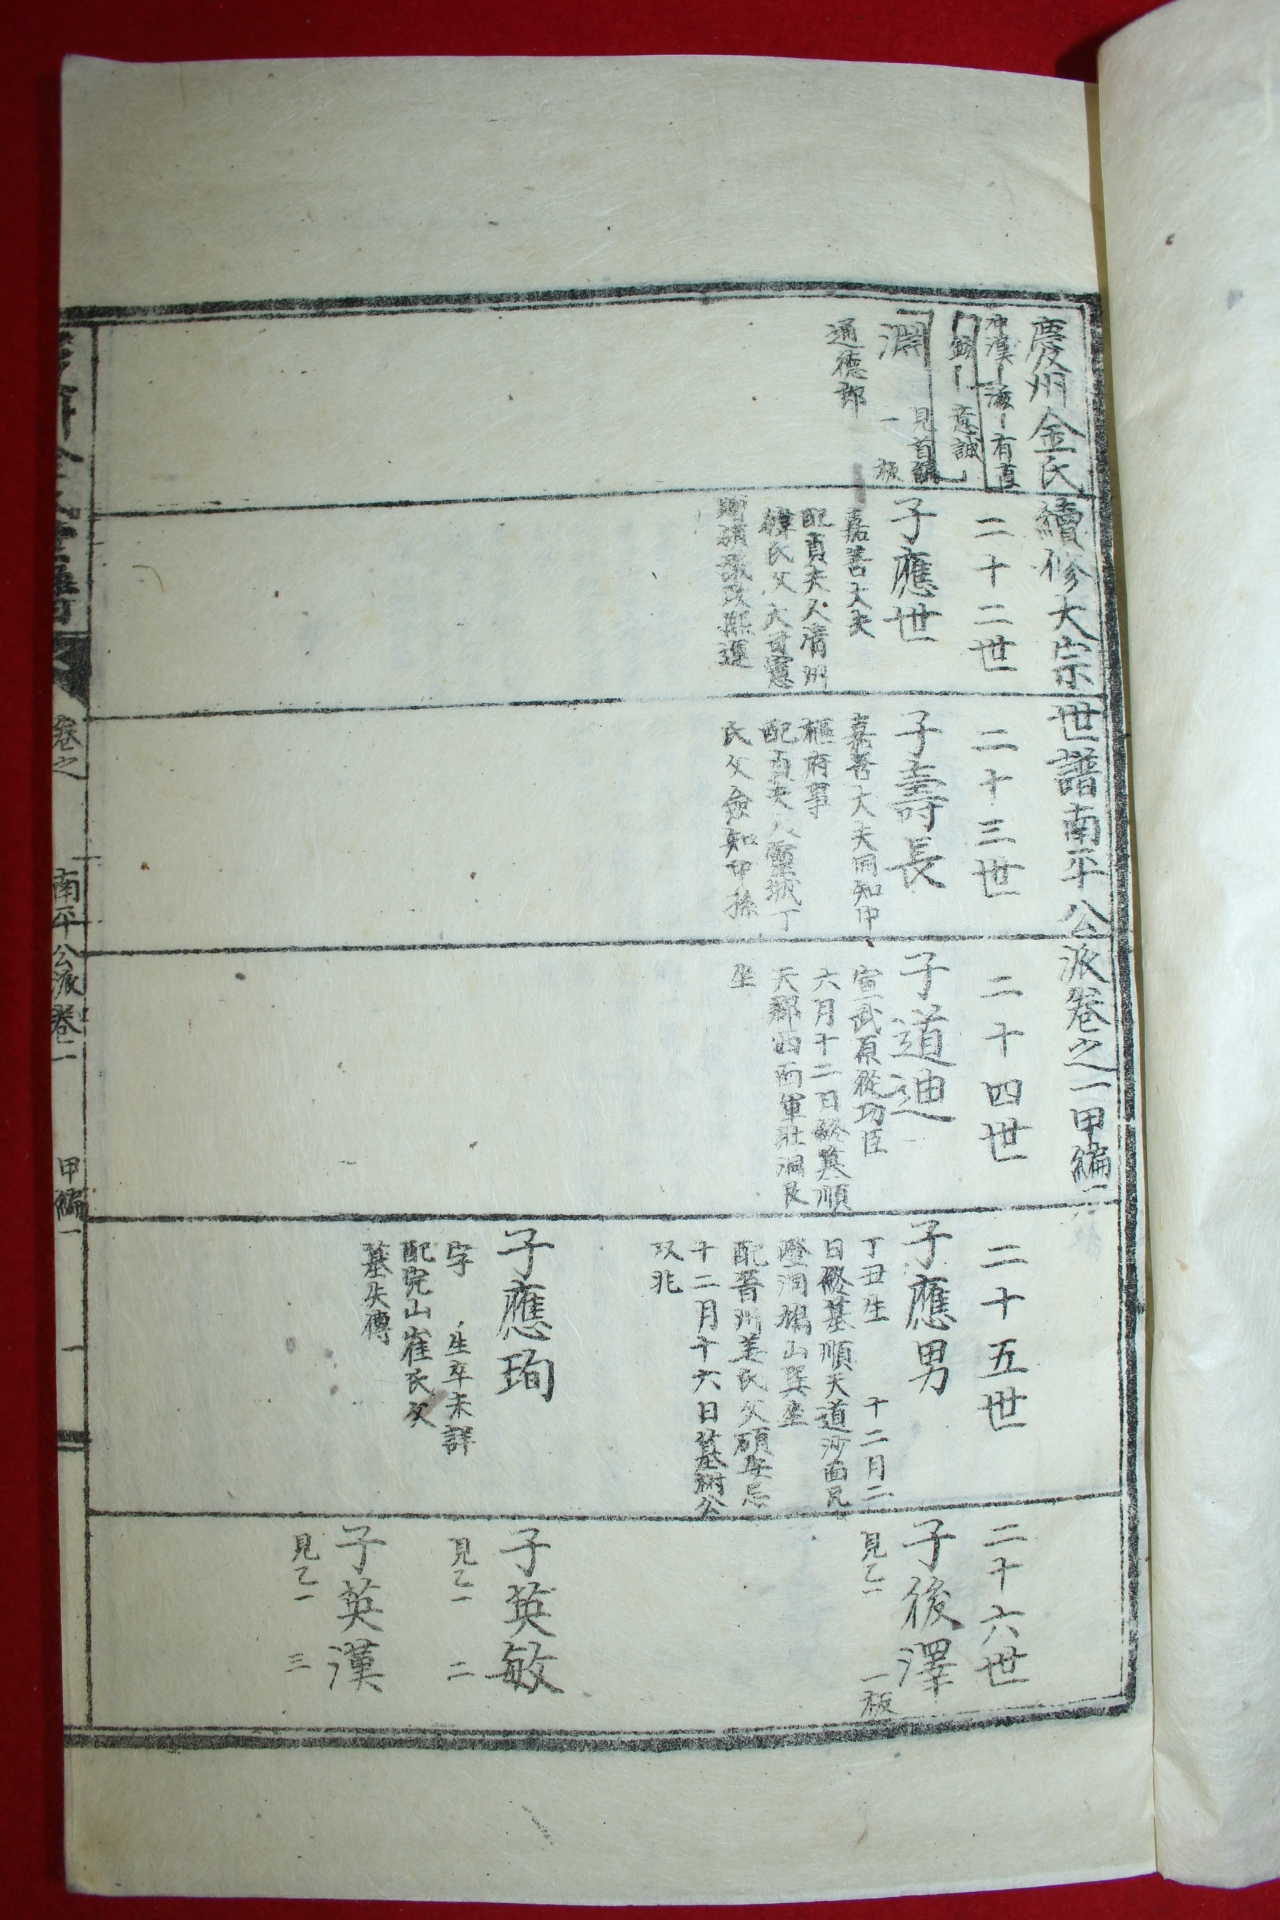 慶州金氏續修大宗世譜南平公派卷之一甲編一
冲漢－滋－有直
－意誠
淵
見首編
一板
通德郎
二十二世
子應世
嘉善大夫
配貞夫人淸州
韓氏父大司憲
贈領議政
二十三世
子壽長
嘉善大夫同知中
樞府事
配貞夫人靈城丁
氏父僉知中孫
二十四世
子道迪
宣武原從功臣
六月十二日終墓順
天郡西面軍壯洞艮
坐
二十五世
子應男
丁丑生 十二月二
日終墓順天道沙面瓦
磴洞鵂山巽坐
配晉州姜氏父碩 忌
十二月十六日墓祔公
双兆
子應珣
字 生卒未詳
配完山崔氏父
墓失傳
二十六世
子後澤
見乙一 一板
子英敏
見乙一 二
子英漢
見乙一 三
卷之
南平公派卷一
甲編一
一